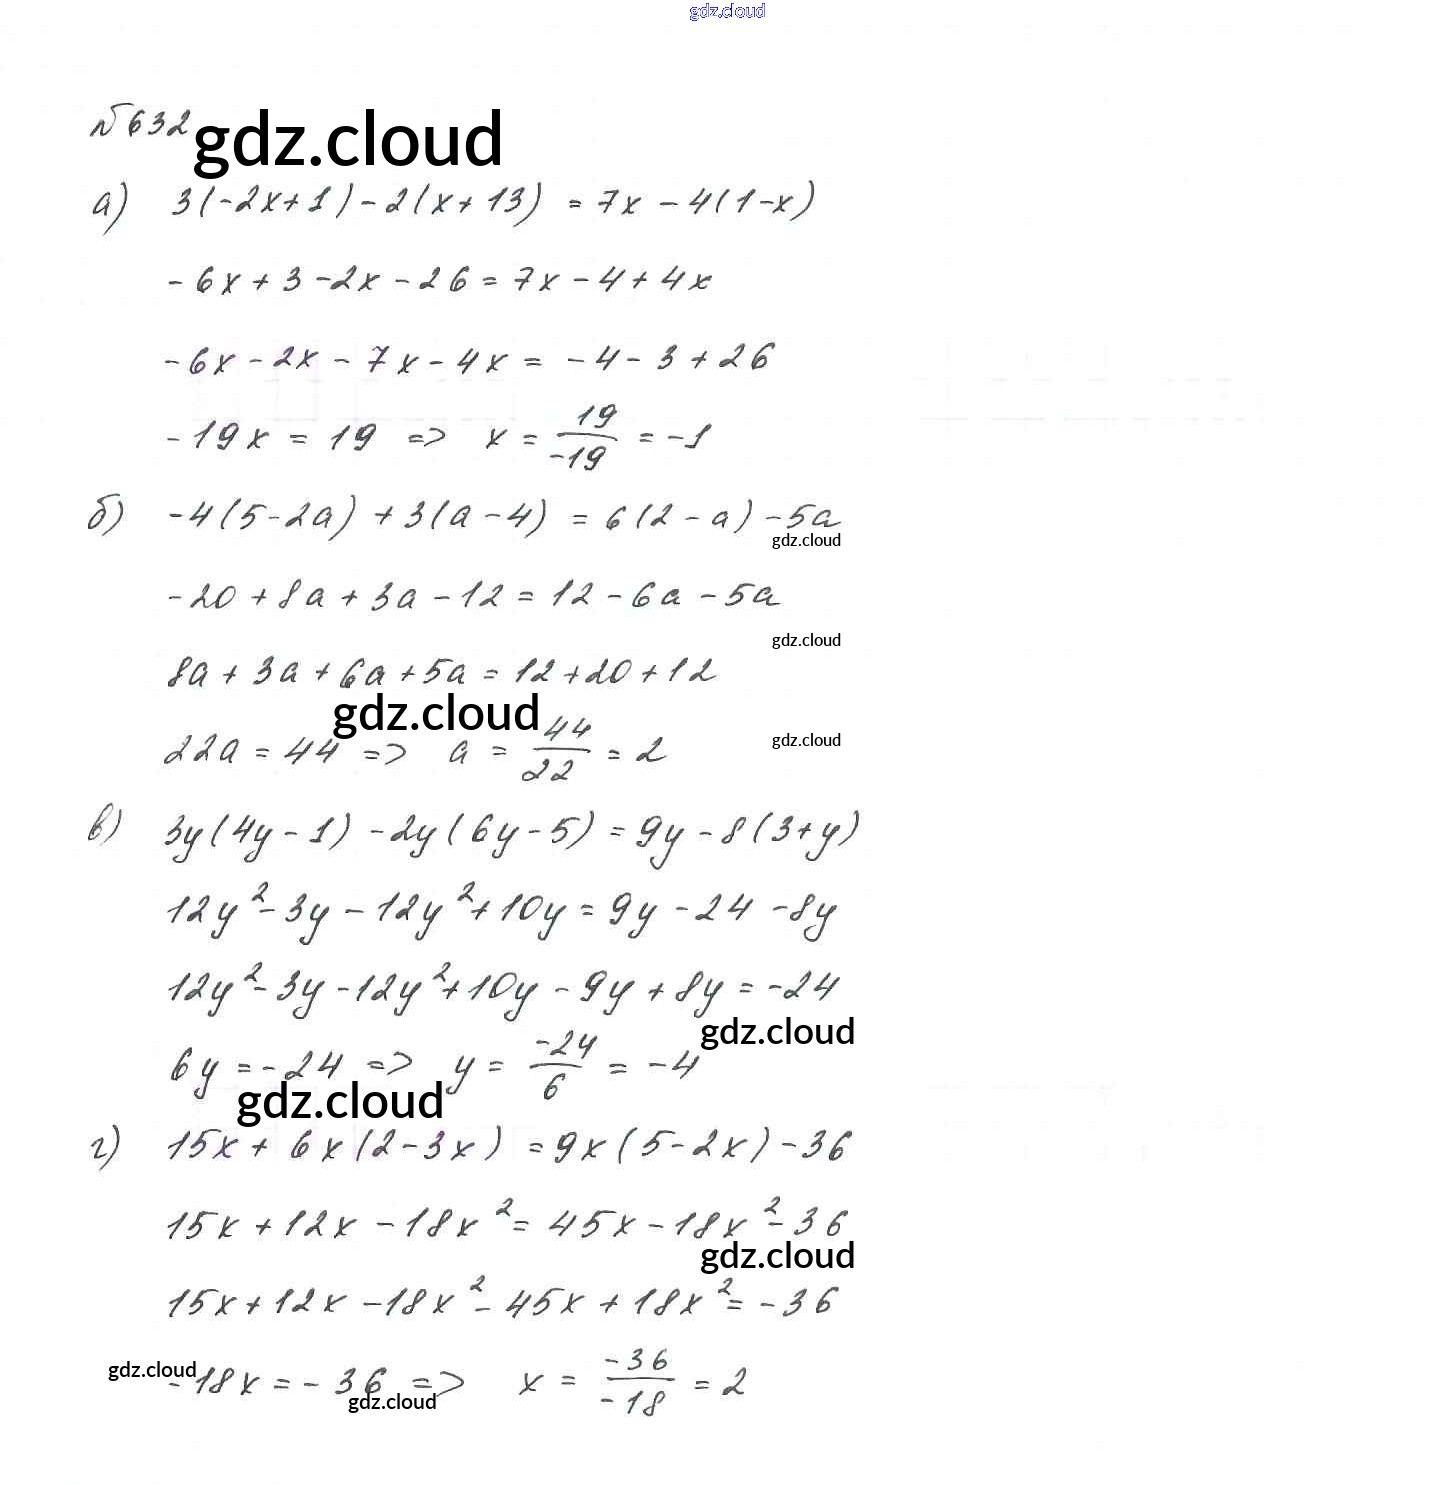 gdz.cloud
№632
gdz.cloud
а) 3(-2x+1)-2(x+13) = 7x-4(1-x)
-6x+3-2x-26=7x-4+4x
-6x-2x-7x-4x=-4-3+26
-19x=19 => x=19/-19=-1
б) -4(5-2a)+3(a-4)=6(2-a)-5a
gdz.cloud
-20+8a+3a-12=12-6a-5a
gdz.cloud
8a+3a+6a+5a=12+20+12
gdz.cloud
22a=44 => a=44/22=2
gdz.cloud
в) 3y(4y-1)-2y(6y-5)=9y-8(3+y)
12y²-3y-12y²+10y=9y-24-8y
12y²-3y-12y²+10y-9y+8y=-24
gdz.cloud
6y=-24 => y=-24/6=-4
gdz.cloud
г) 15x+6x(2-3x)=9x(5-2x)-36
15x+12x-18x²=45x-18x²-36
gdz.cloud
15x+12x-18x²-45x+18x²=-36
gdz.cloud
-18x=-36 => x=-36/-18=2
gdz.cloud